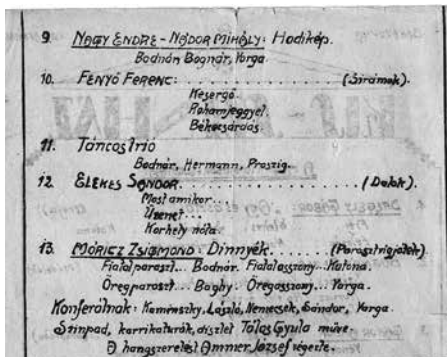 9. NAGY ENDRE - NÁDOR MIHÁLY: Hadikép.
Bodnár, Bognár, Varga.
10. FENYŐ FERENC: (Sirámok).
Kesergő.
Rohamjeggyel.
Békecsárdás.
11. Táncostrió
Bodnár, Hermann, Praszig.
12. ELEKES SÁNDOR. (Dalok).
Most amikor...
Üzenet...
Korhely nóta.
13. MÓRICZ ZSIGMOND: Dinnyék. (Parasztrigolette).
Fiatalparaszt... Bodnár. Fiatalasszony... Katona.
Öregparaszt... Baghy. Öregasszony... Varga.
Konferálnak: Kaminszky, László, Nemecsek, Sándor, Varga.
Színpad, karrikaturák, díszlet Tálas Gyula műve.
A hangszerelést Ammer József végezte.